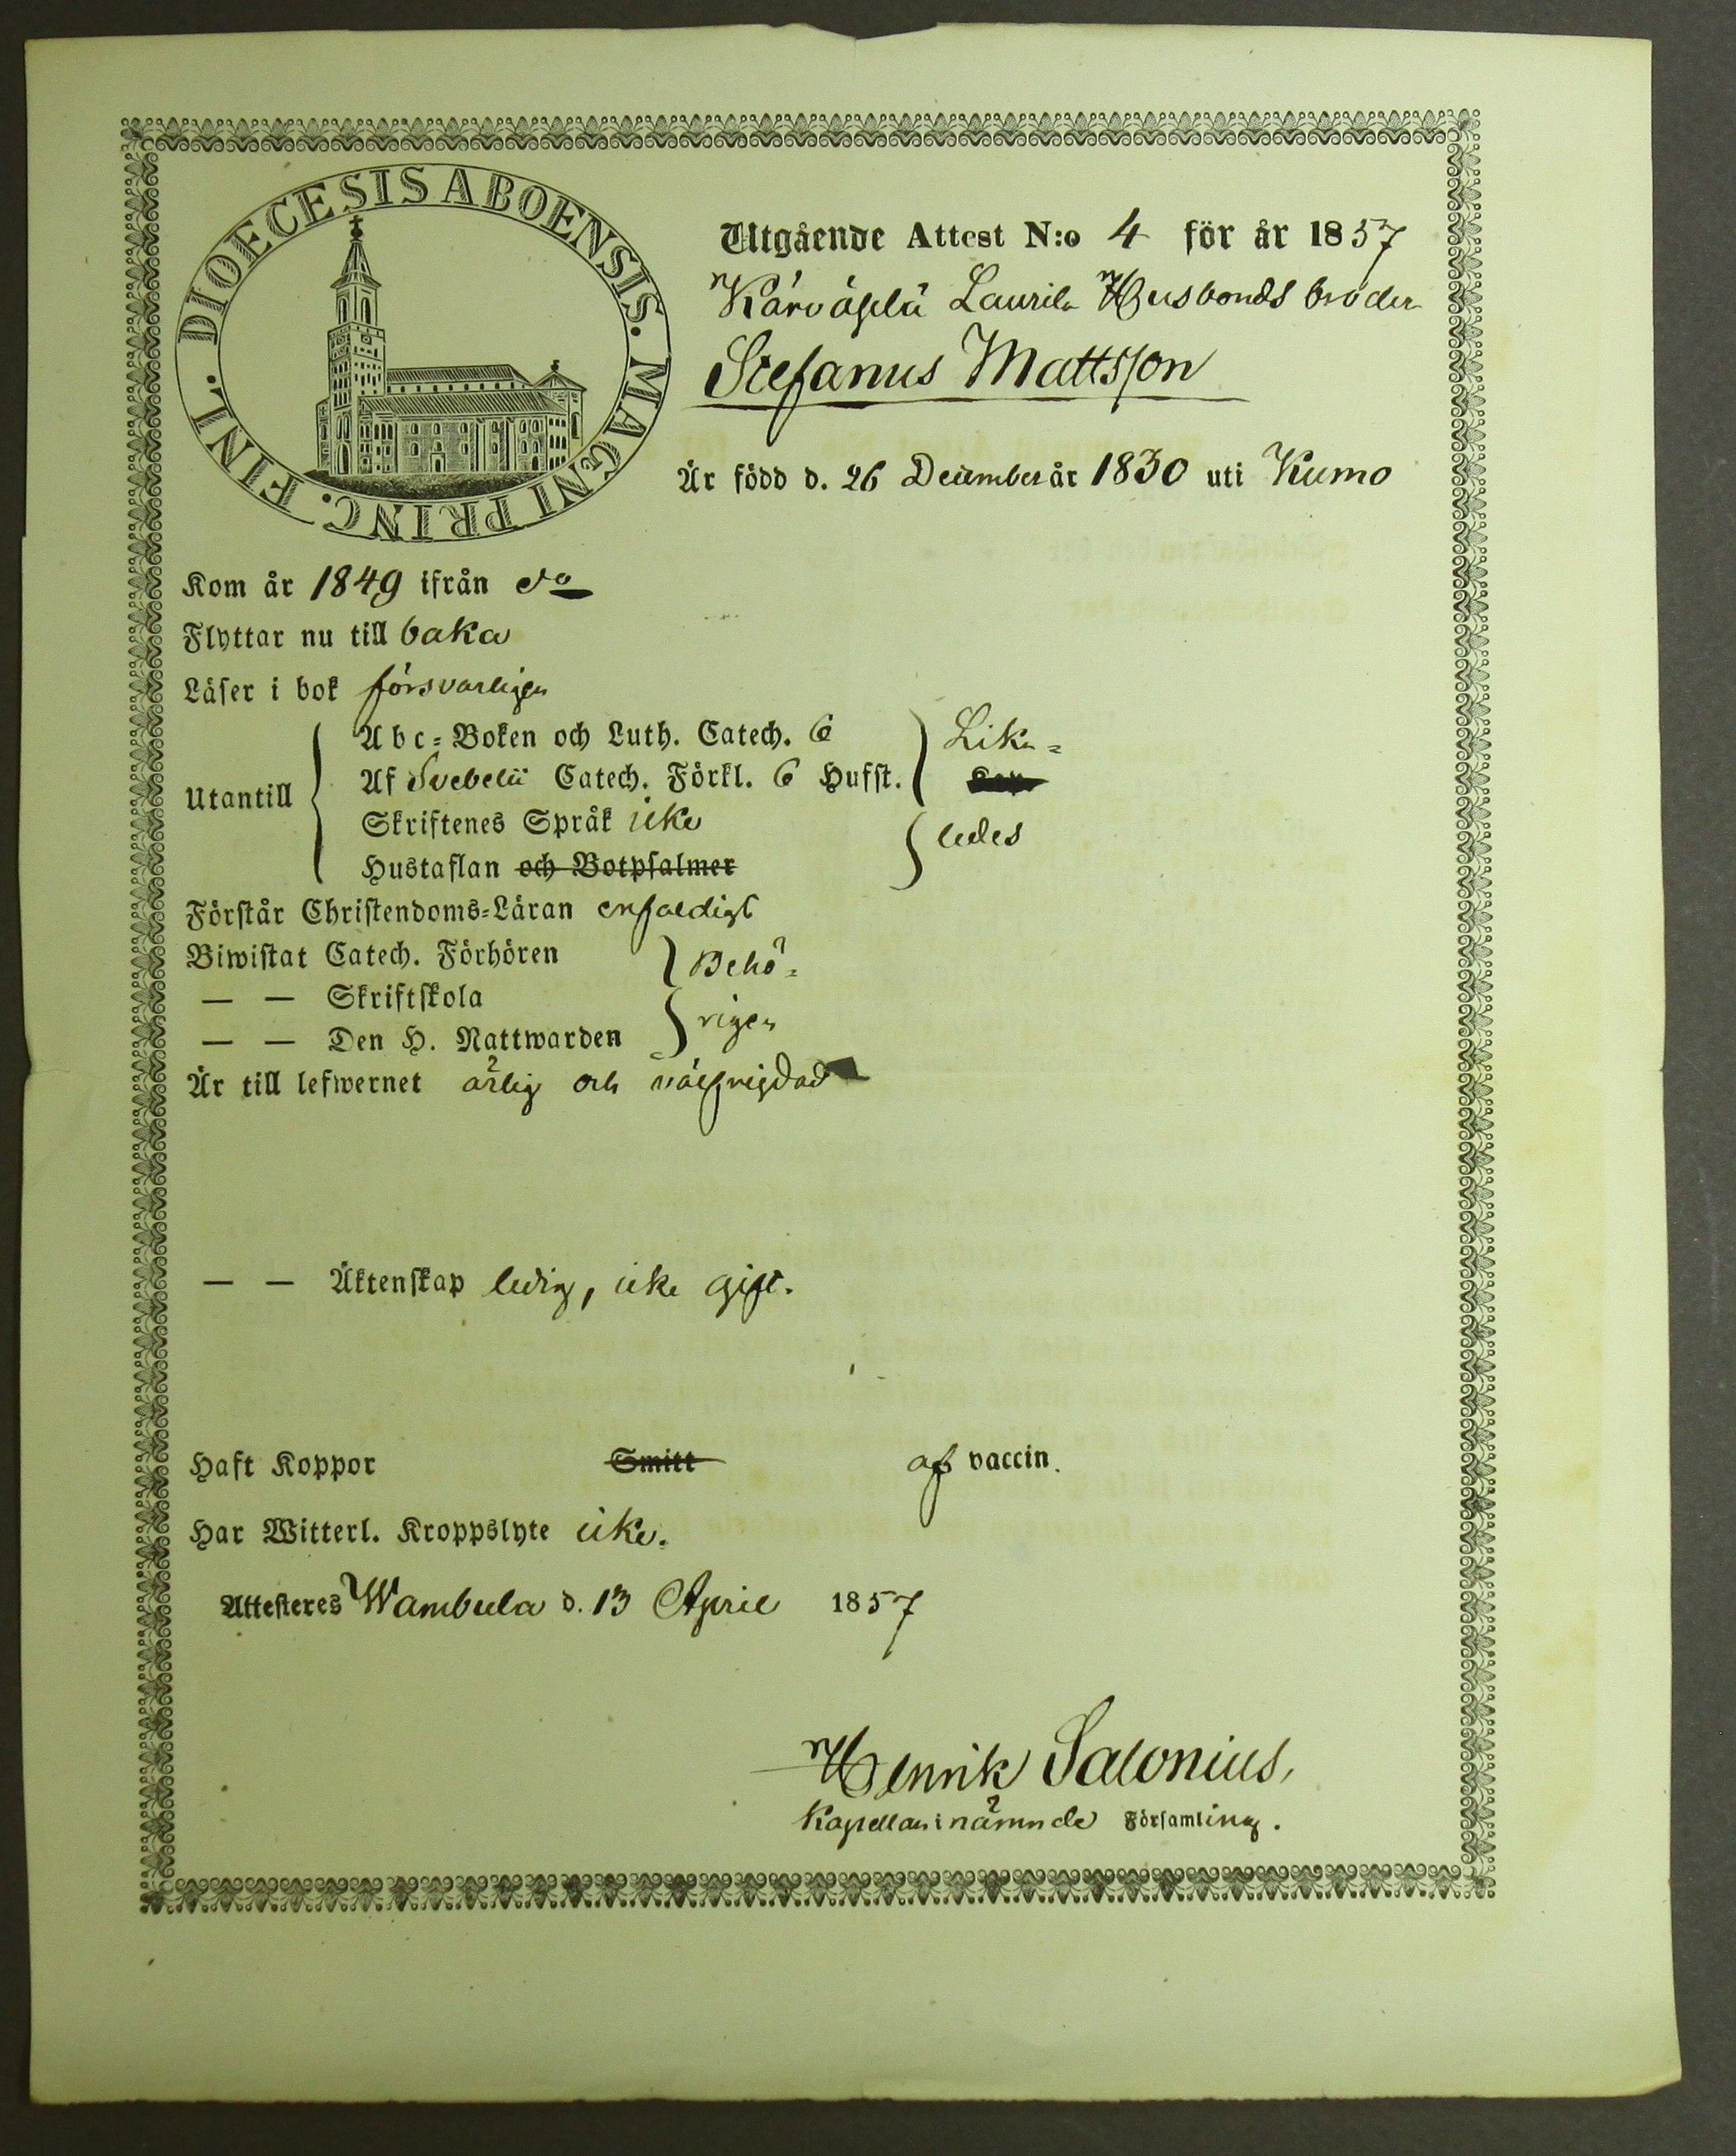 DIOECESIS ABOENSIS. MAGNI PRINC. FINL.
Utgående Attest N:o 4 för år 1857
Laurila Husbonds broder
Stefanus Mattsson
Är född d. 26 December år 1830 uti Kumo
Kom år 1849 ifrån do
Flyttar nu till baka
Läser i bok försvarligen
Utantill
Abc-Boken och Luth. Catech. 6
Af Svebelii Catech. Förkl. 6 Hufst.
Skriftenes Språk icke
Hustaflan och Botpsalmer
Lika-
ledes
Förstår Christendoms-Läran enfaldigt
Biwistat Catech. Förhören
— — Skriftskola
— — Den H. Nattwarden
Behö-
rigen
Är till lefwernet ärlig och välfrejdad
— — Äktenskap ledig, icke gift.
Haft Koppor Smitt af vaccin.
Har Witterl. Kroppslyte icke.
Attesteres Wambula d. 13 April 1857
Henrik Salonius,
Kapellan i nämnde Församling.